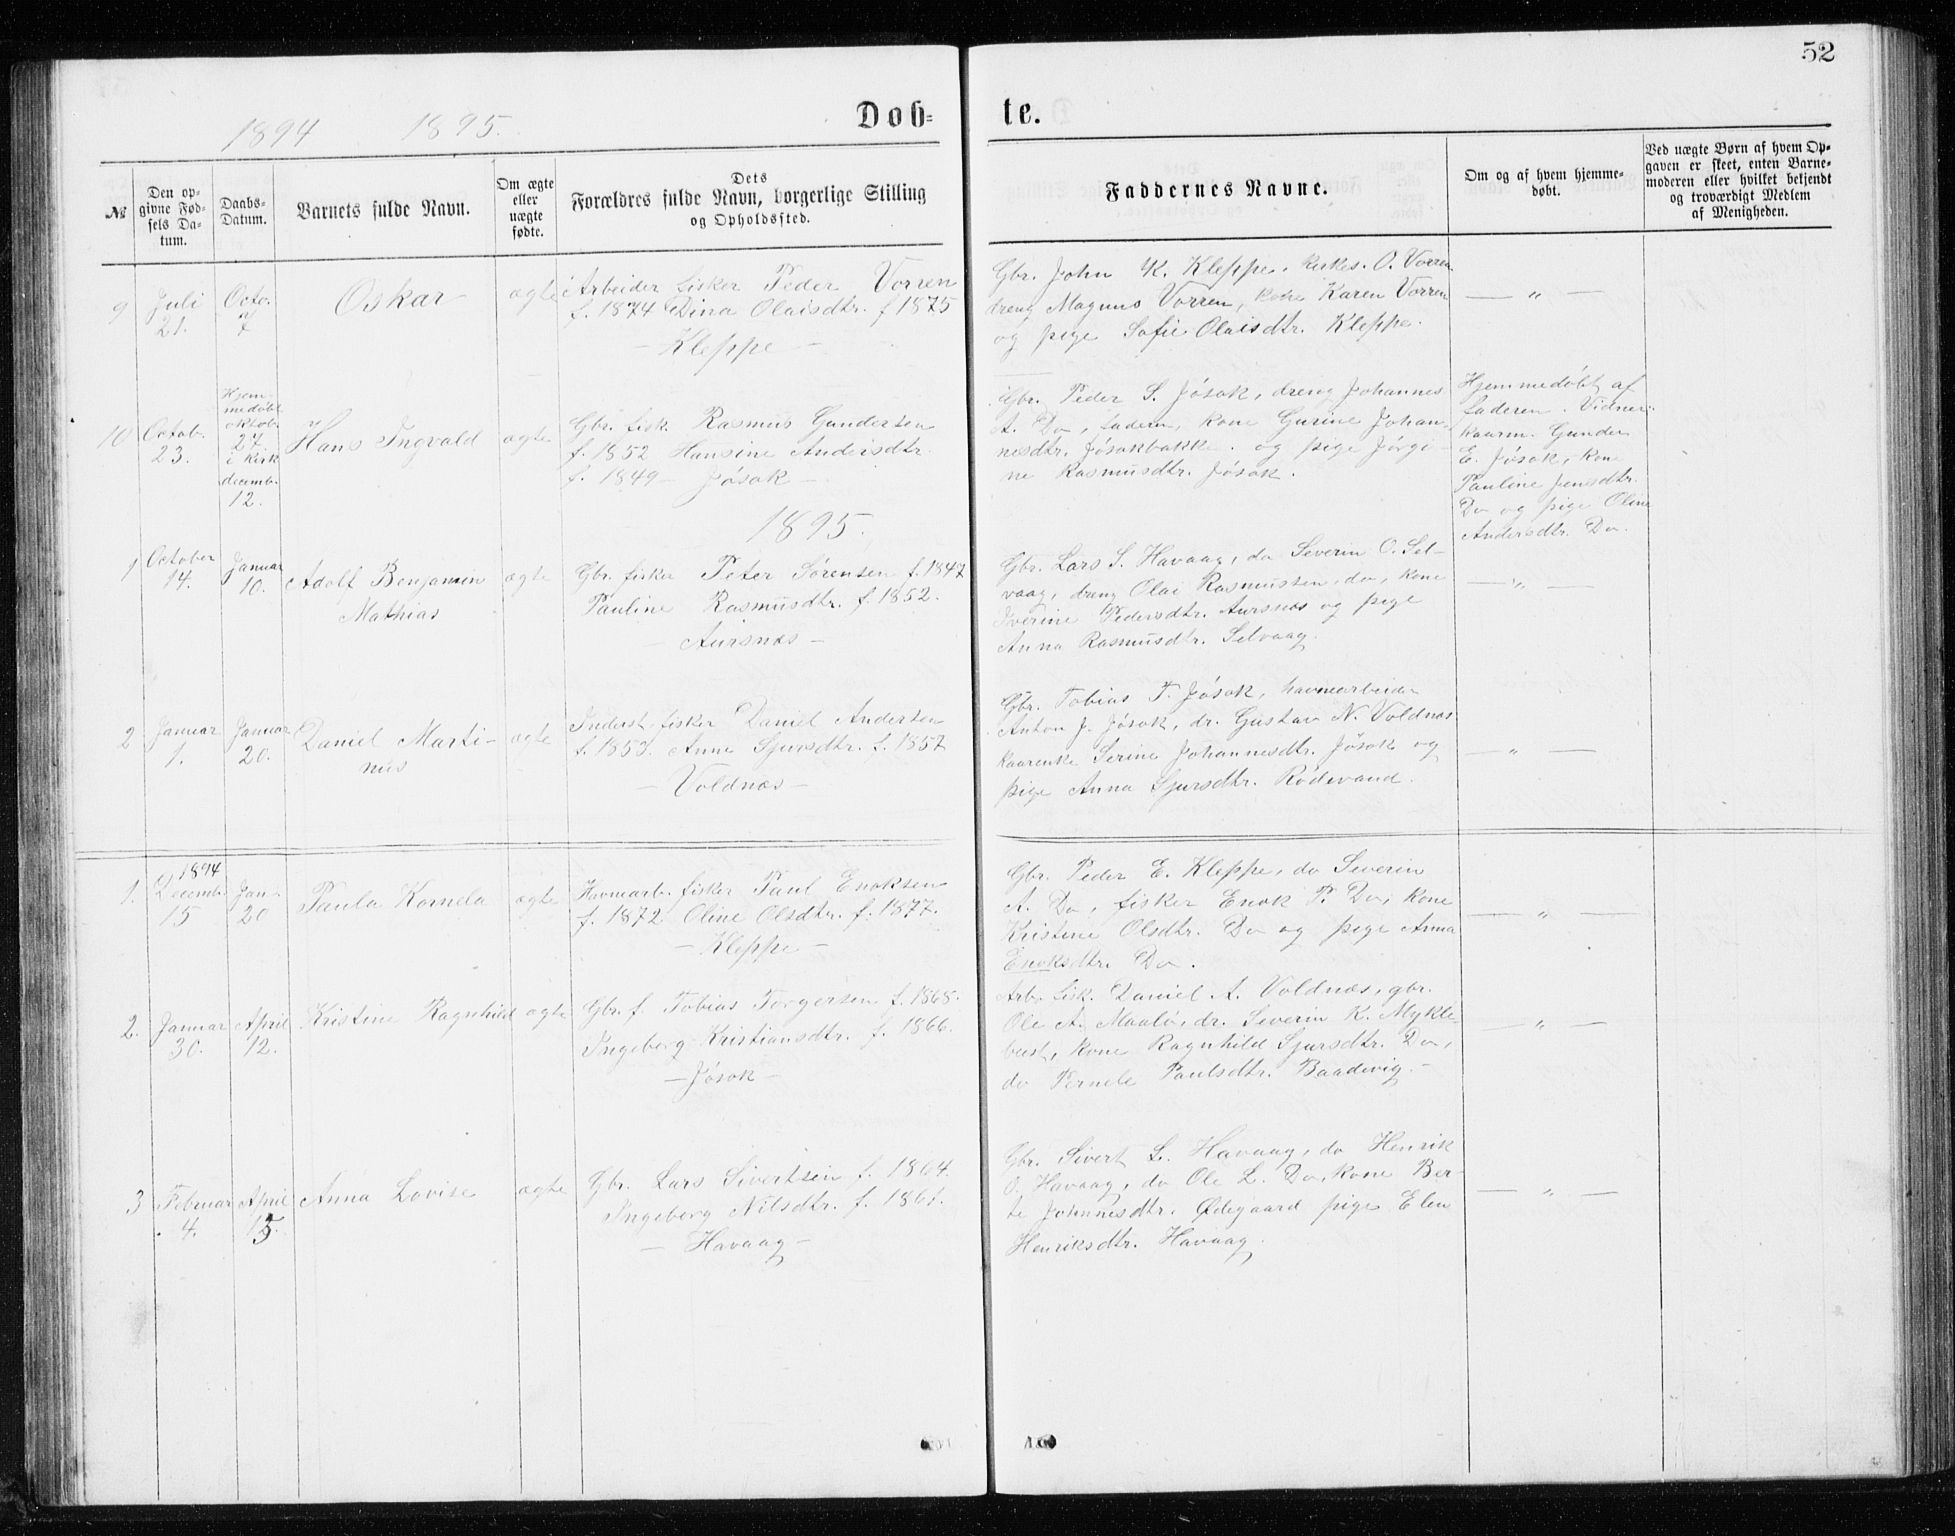 52
Døb=
te.
1894 1895.
№
Den op-
givne Fød-
sels Da-
tum.
Daabs-
Datum.
Barnets fulde Navn.
Om ægte
eller
uægte
fødte.
Dets
Forældres fulde Navn, borgerlige Stilling
og Opholdssted.
Faddernes Navne.
Om og af hvem hjemme-
døbt.
Ved uægte Børn af hvem Op-
gaven er skeet, enten Barne-
moderen eller hvilket bekjendt
og troværdigt Medlem
af Menigheden.
9
Juli
21.
Octo.
7
Oskar
ægte
Arbeider fisker Peder Vorren
f. 1874 Dina Olaisdtr. f 1875
— Kleppe —
Gbr. John K. Kleppe, O. Vorren
dreng Magnus Vorren, kone Karen Vorren
og pige Sofie Olaisdtr. Kleppe.
— „ —
10
Octob.
23.
Hjem-
medøbt
oktob.
27
i Kirk
decemb.
12.
Hans Ingvald
ægte
Gbr. fisk. Rasmus Gundersen
f. 1852 Hansine Andersdtr.
f. 1849 — Jøsok —
Gbr. Peder S. Jøsok, dreng Johannes
A. Do, faderen, kone Gurine Johan-
nesdtr. Jøsokbakke. og pige Jørgi-
ne Rasmusdtr. Jøsok.
Hjemmedøbt af
faderen. Vidner:
kaarm. Gunder
E. Jøsok, kone
Pauline Jensdtr.
Do og pige Oline
Andersdtr. Do.
1895.
1
October
14.
Januar
10.
Adolf Benjamin
Mathias
ægte
Gbr. fisker Peter Sørensen f. 1847
Pauline Rasmusdtr. f. 1852.
— Aursnæs —
Gbr. Lars S. Havaag, do Severin O. Sel-
vaag, dreng Olai Rasmussen, do, kone
Iverine Pedersdtr. Aursnæs og pige
Anna Rasmusdtr. Selvaag.
— „ —
2
Januar
1.
Januar
20.
Daniel Marti-
nus
ægte
Inderst fisker Daniel Andersen
f. 1853. Anne Sjursdtr. f. 1857
— Voldnæs —
Gbr. Tobias T. Jøsok, havnearbeider
Anton J. Jøsok, dr. Gustav N. Voldnæs
kaarenke Serine Johannesdtr. Jøsok og
pige Anna Sjursdtr. Rødevand.
— „ —
1.
1894
Decemb.
15
Jan.
20
Paula Kornela
ægte
Havnearb. fisker Paul Enoksen
f. 1872 Oline Olsdtr. f. 1877.
— Kleppe —
Gbr. Peder E. Kleppe, do Severin
A. Do, fisker Enok P. Do, kone
Kristine Olsdtr. Do og pige Anna
Enoksdtr. Do.
— „ —
2.
Januar
30.
April
12.
Kristine Ragnhild
ægte
Gbr. f. Tobias Torgersen f. 1868.
Ingeborg Kristiansdtr. f. 1866.
— Jøsok —
Arb. fisk. Daniel A. Voldnæs, gbr.
Ole A. Maalø, dr. Severin K. Mykle-
bust, kone Ragnhild Sjursdtr. Do,
do Pernele Paulsdtr. Baadevig. —
— „ —
3
Februar
4.
April
15.
Anna Lovise
ægte
Gbr. Lars Sivertsen f. 1864.
Ingeborg Nilsdtr. f. 1861.
— Havaag —
Gbr. Sivert L. Havaag, do Henrik
O. Havaag, do Ole L. Do, kone Ber-
te Johannesdtr. Ødegaard pige Elen
Henriksdtr. Havaag.
— „ —